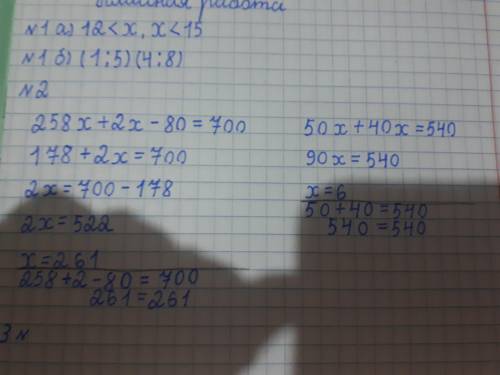 работа
№1 а) 12<x, x<15
№1 б) (1;5) (4;8)
№2
258x+2x-80=700
178+2x=700
2x=700-178
2x=522
x=261
258+2-80=700
261=261
50x+40x=540
90x=540
x=6
50+40=540
540=540
3 №